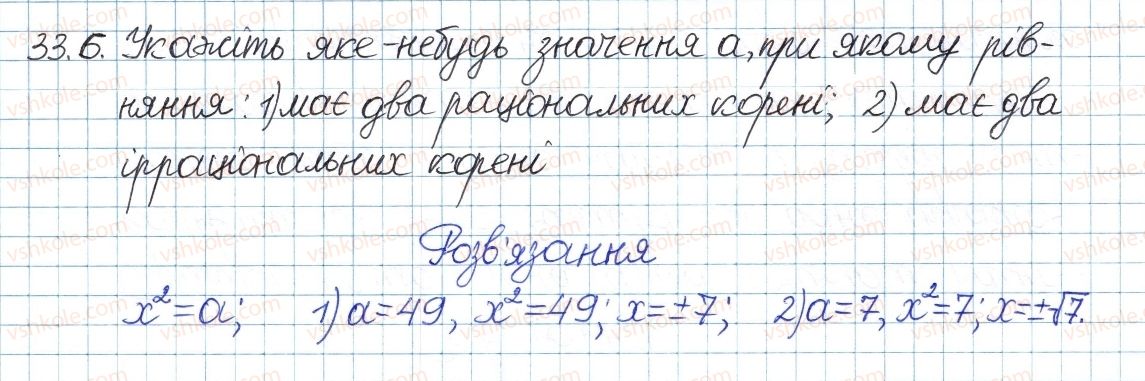 33.6. Укажіть яке-небудь значення a, при якому рів-
няння: 1) має два раціональних корені; 2) має два
ірраціональних корені
Розв'язання
x² = a; 1) a = 49, x² = 49; x = ±7; 2) a = 7, x² = 7; x = ±√7.